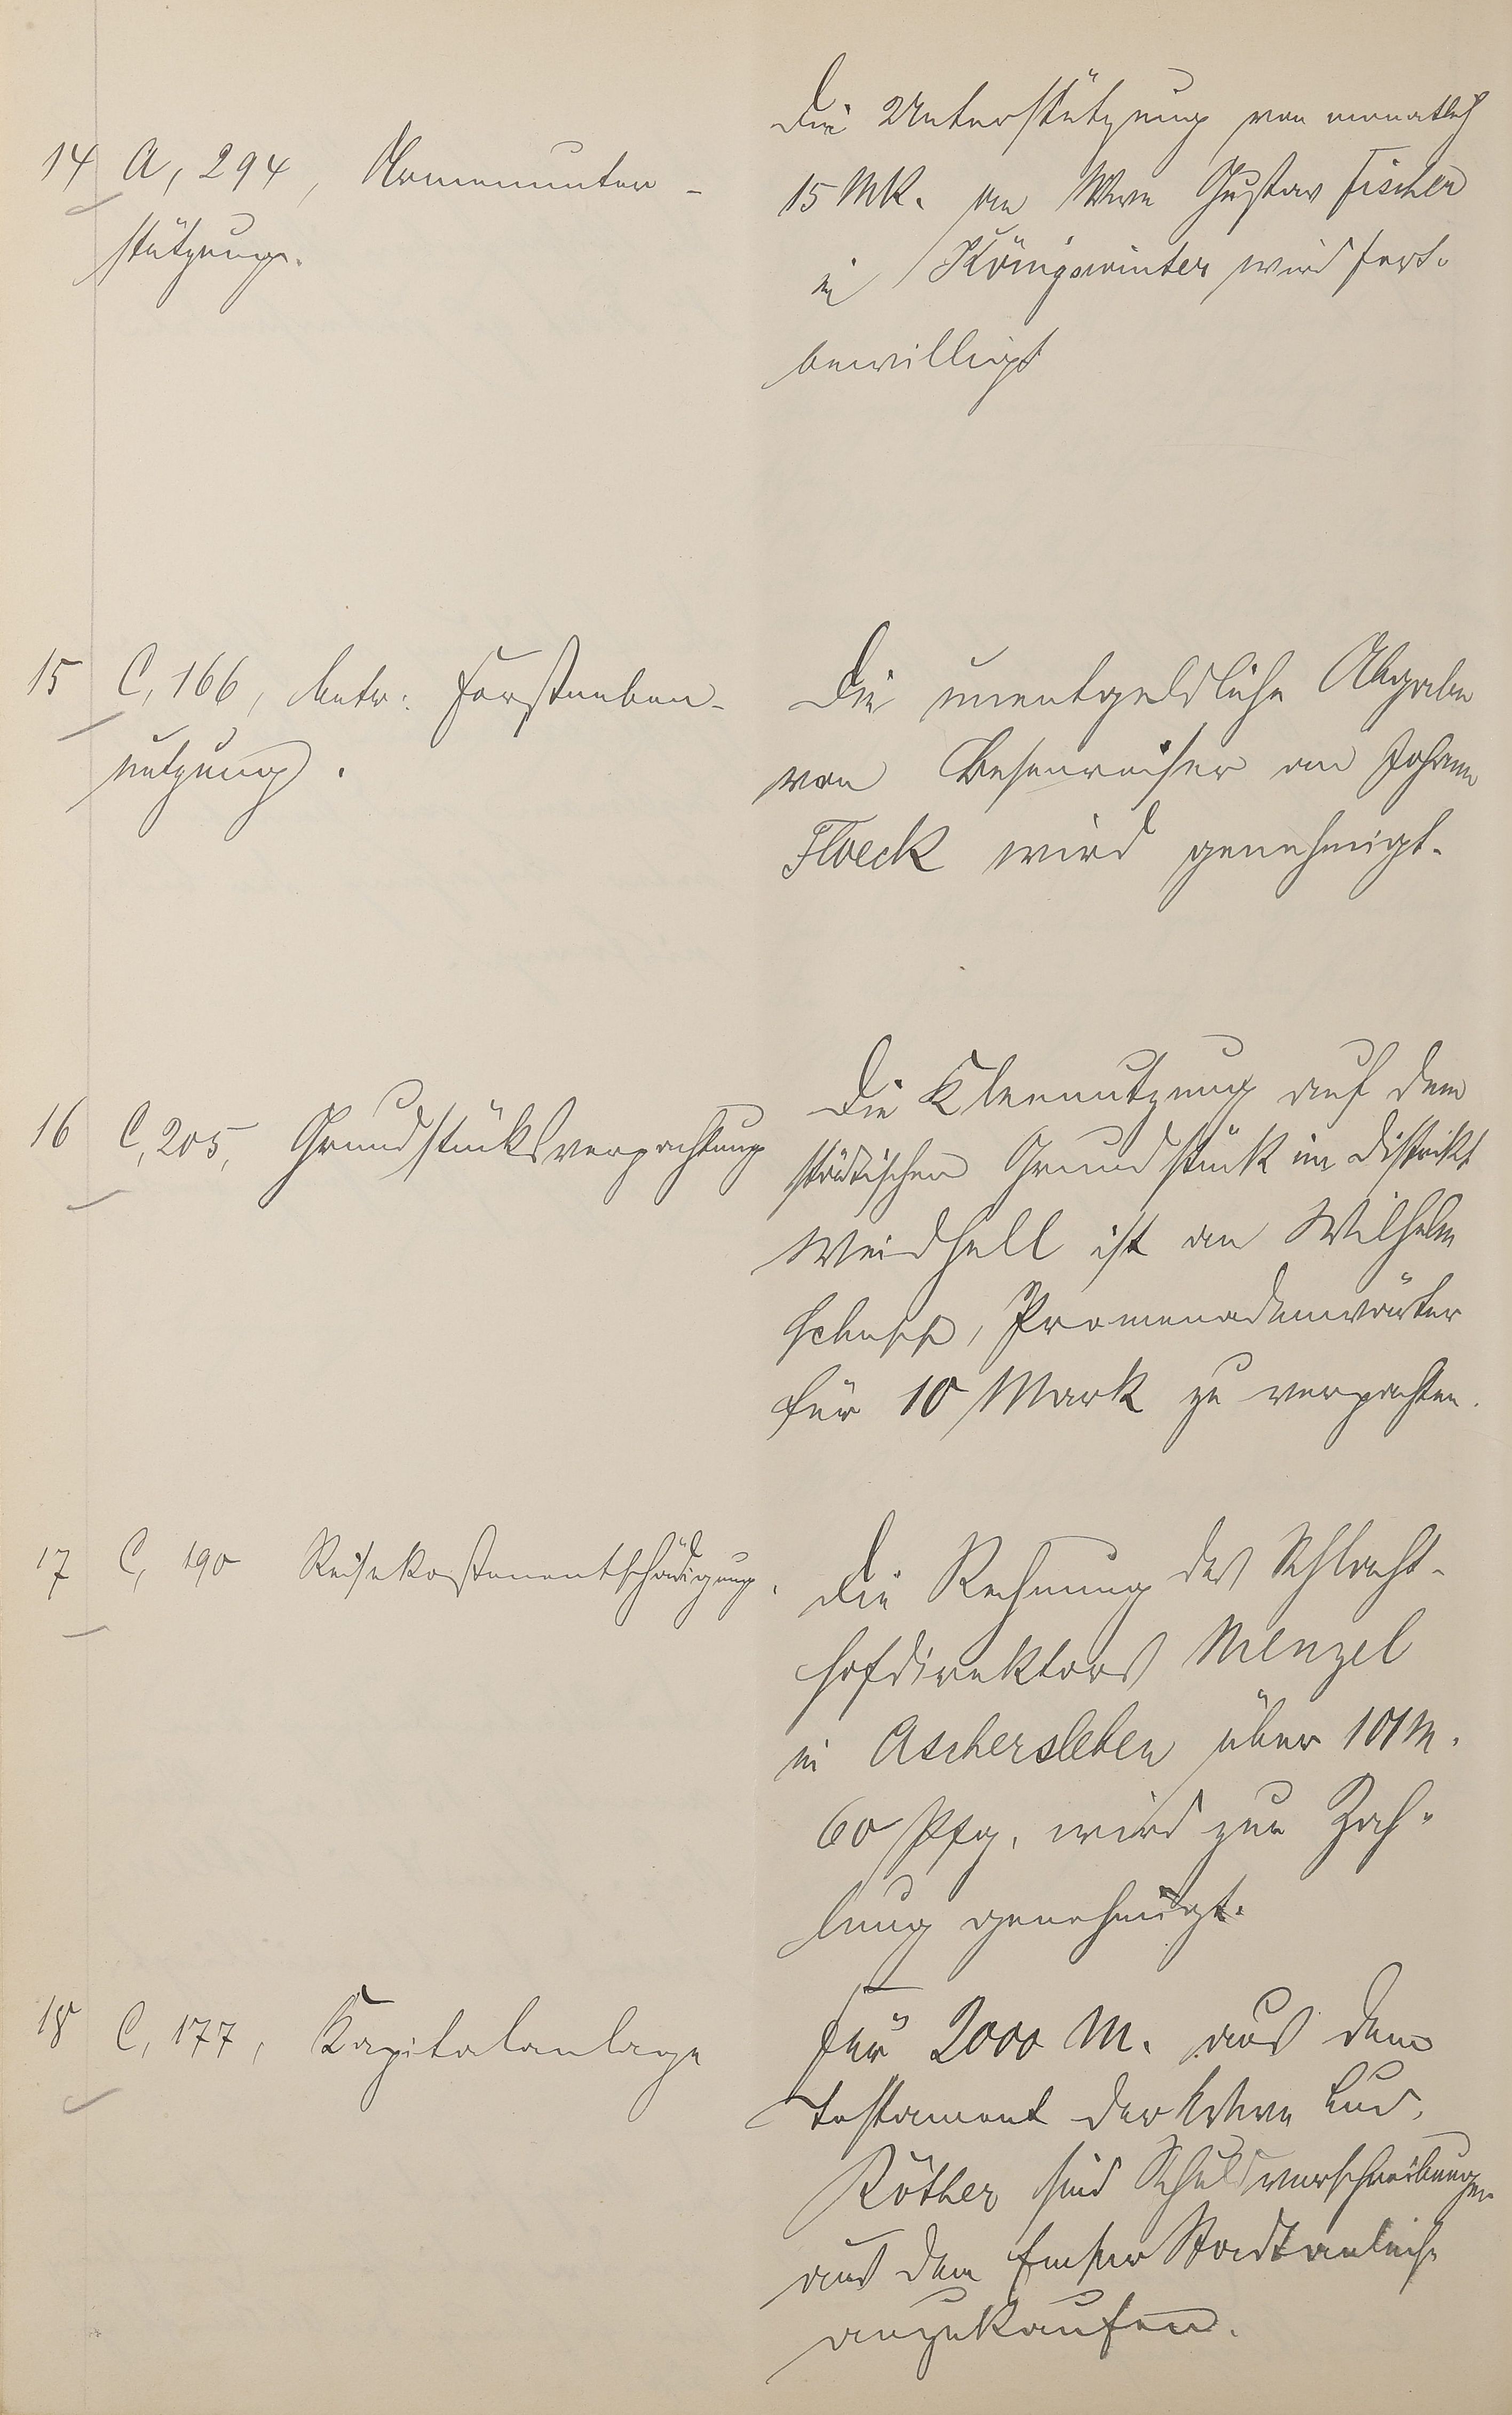 14 A, 294, Armenunter-
stützung.
Die Unterstützung von monatlich
15 Mk. an Wwe Gustav Fischer
in Königswinter wird fort-
bewilligt
15 C, 166, betr: Forstneben-
nutzung.
Die unentgeldliche Abgabe
von Besenreiser an Johann
Floeck wird genehmigt.
16 C, 205, Grundstücksverpachtung
Die Kleenutzung auf dem
städtischen Grundstück im Distrikt
Weidhell ist an Wilhelm
Schupp, Promenadenwärter
für 10 Mark zu verpachten.
17 C, 190 Reisekostenentschädigung.
Die Rechnung des Schlacht-
hofdirektors Menzel
in Aschersleben über 101 M.
60 Pfg. wird zur Zah-
lung genehmigt.
18 C, 177, Kapitalanlage
Für 2000 M. aus dem
Testament der Wwe Lud.
Röther sind Schuldverschreibungen
aus der Emser Stadtanleihe
anzukaufen.